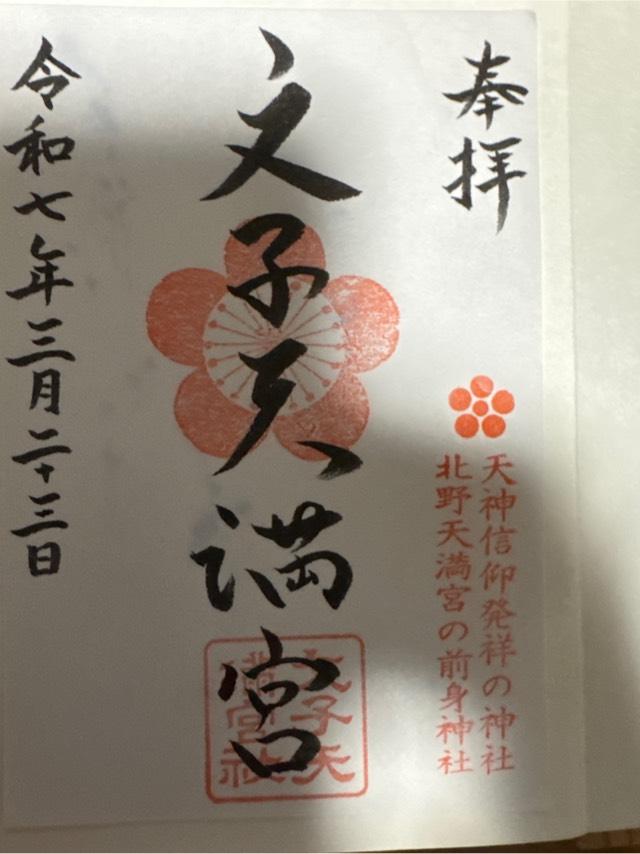 奉拝
天神信仰発祥の神社
北野天満宮の前身神社
文子天満宮
文子天
満宮社
令和七年三月二十三日